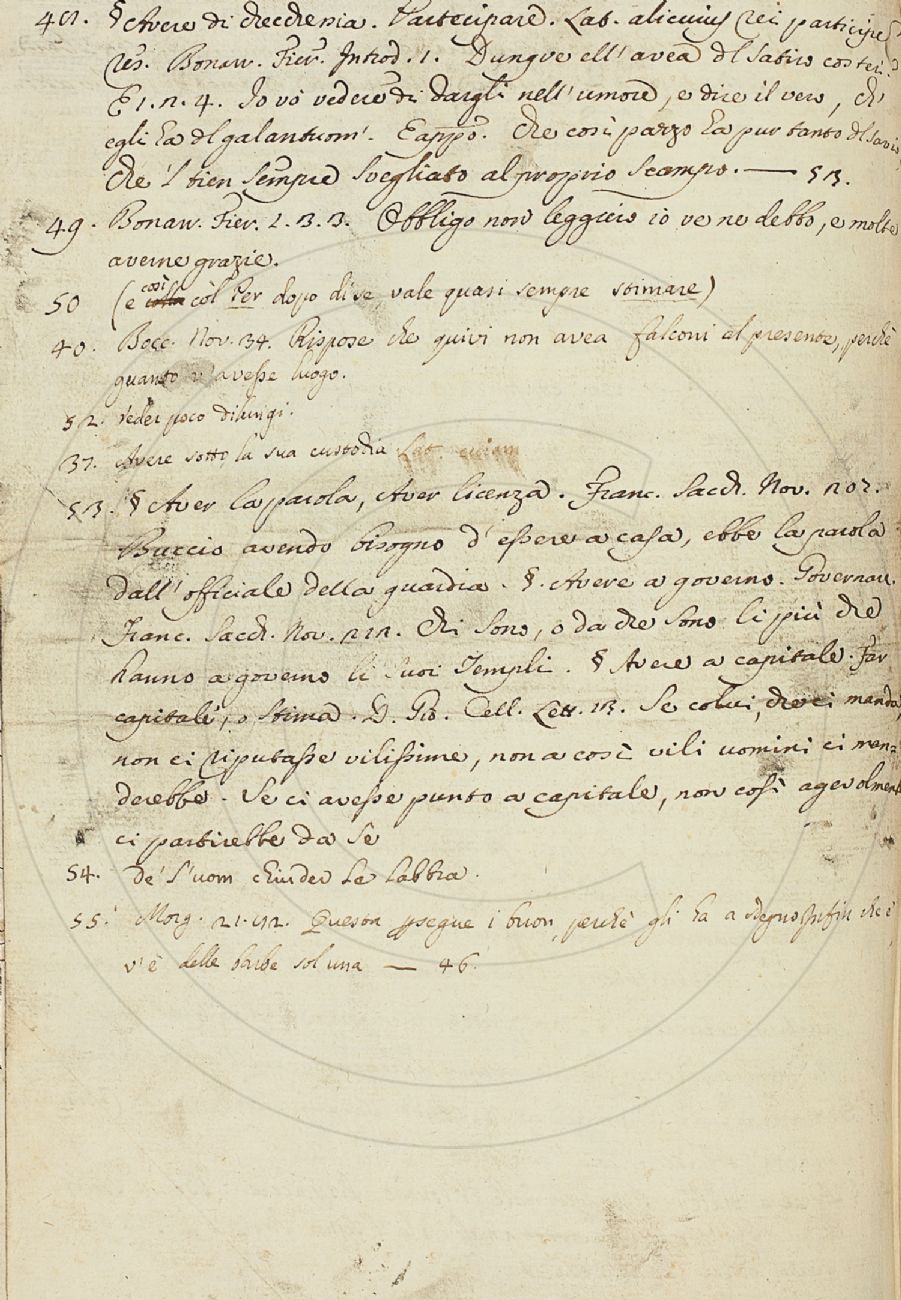 48. § Avere di checchessia. Partecipare. Lat. alicuius rei participe
res. Bonarr. Fier. Introd. 1. Dunque ell' avea dl Satiro costei.
E 1. n. 4. Io vò vedere di dargli nell' umore, e dire il vero, ch'
egli ha dl galantuom'. E appo. Che così pazzo ha pur tanto dl savio,
che 'l tien sempre svegliato al proprio scampo. — 53.
49. Bonarr. Fier. 2. 3. 3. Obbligo non leggiero io ve ne debbo, e molte
averne grazie.
50 (e così còl Per dopo di se, vale quasi sempre stimare)
40. Bocc. Nov. 34. Rispose che quivi non avea falconi al presente, perchè
guanto v' avesse luogo.
52. Veder poco dilungi.
37. Avere sotto la sua custodia Lat.
53. § Aver la parola, Aver licenza. Franc. Sacch. Nov. 207.
Buccio avendo bisogno d' essere a casa, ebbe la parola
dall' officiale della guardia. §. Avere a governo. Governare.
Franc. Sacch. Nov. 212. Chi sono, o da che sono li più che
hanno a governo li suoi Templi. § Avere a capitale. Far
capitale, o stima. D. Gio. Cell. Lett. 13. Se colui, che ci manda,
non ci riputasse vilissime, non a così vili uomini ci man=
derebbe. Se ci avesse punto a capitale, non così agevolment
ci partirebbe da se
54. De' l' uom chiuder le labbra.
55. Morg. 21. 42. Questa persegue i buon, perchè gli ha a sdegno Infin che e'
v' è delle barbe sol una — 46.